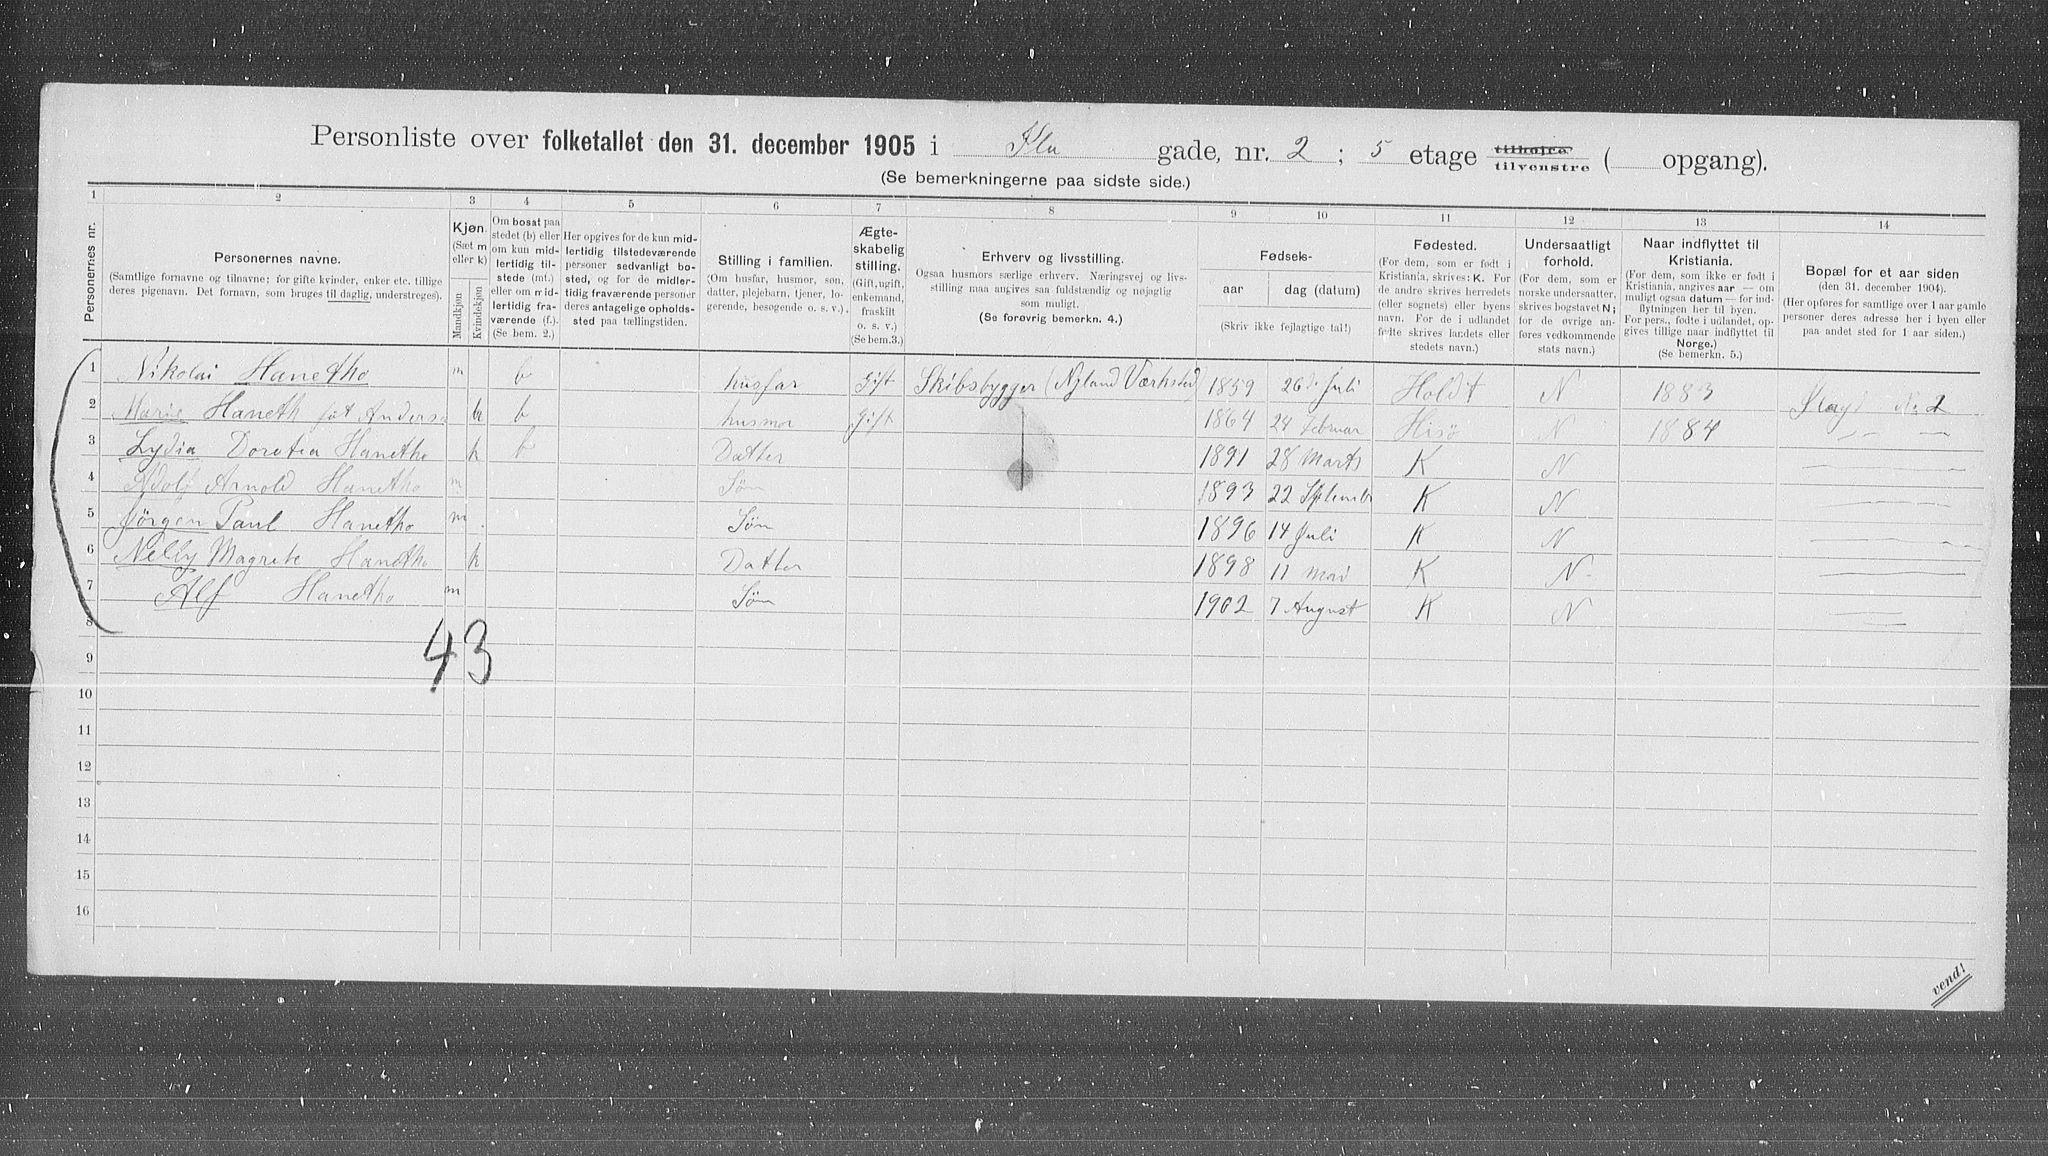 Personliste over folketallet den 31. december 1905 i Flu gade, nr. 2 ; 5 etage tilhøire tilvenstre ( opgang).
(Se bemerkningerne paa sidste side.)
1 2 3 4 5 6 7 8 9 10 11 12 13 14
Personernes nr.
Personernes navne.
(Samtlige fornavne og tilnavne; for gifte kvinder, enker etc. tillige
deres pigenavn. Det fornavn, som bruges til daglig, understreges).
Kjøn.
(Sæt m
eller k)
Mandkjøn
Kvindekjøn
Om bosat paa
stedet (b) eller
om kun mid-
lertidig til-
stede (mt.)
eller om mid-
lertidig fra-
værende (f.).
(Se bem. 2.)
Her opgives for de kun mid-
lertidig tilstedeværende
personer sedvanligt bo-
sted, og for de midler-
tidig fraværende personer
deres antagelige opholds-
sted paa tællingstiden.
Stilling i familien.
(Om husfar, husmor, søn,
datter, plejebarn, tjener, lo-
gerende, besøgende o. s. v.).
Ægte-
skabelig
stilling.
(Gift, ugift,
enkemand,
fraskilt
o. s. v.)
(Se bem.3.)
Erhverv og livsstilling.
Ogsaa husmors særlige erhverv. Næringsvej og livs-
stilling maa angives saa fuldstændig og nøjagtig
som muligt.
(Se forøvrig bemerkn. 4.)
Fødsels-
aar dag (datum)
(Skriv ikke fejlagtige tal!)
Fødested.
(For dem, som er født i
Kristiania, skrives: K. For
de andre skrives herredets
(eller sognets) eller byens
navn. For de i udlandet
fødte skrives landets eller
stedets navn.)
Undersaatligt
forhold.
(For dem, som er
norske undersaatter,
skrives bogstavet N;
for de øvrige an-
føres vedkommende
stats navn.)
Naar indflyttet til
Kristiania.
(For dem, som ikke er født i
Kristiania, angives aar — om
muligt ogsaa datum — for ind-
flytningen her til byen.
For pers., fødte i udlandet, op-
gives tillige naar indflyttet til
Norge.)
(Se bemerkn. 5.)
Bopæl for et aar siden
(den 31. december 1904).
(Her opføres for samtlige over 1 aar gamle
personer deres adresse her i byen eller
paa andet sted for 1 aar siden.)
1 Nikolai Hanetho m b husfar Gift Skibsbygger (Nyland Værksted) 1859 26de Juli Holdt N 1883 No 2
2 Marie Haneth føt k b husmor Gift 1864 24 Februar Hisø N 1884 " " —
3 Lydia Dorotea Hanetho k b Datter 1891 28 Marts K N —
4 Adolf Arnold Hanetho m Søn 1893 22 Septembr K N —
5 Jörgen Paul Hanetho m Søn 1896 14 Juli K N —
6 Nelly Magrete Hanetho k Datter 1898 11 Mai K N —
7 Alf Hanetho m Søn 1902 7 August K N —
8
43
9
10
11
12
13
14
15
16
vend!